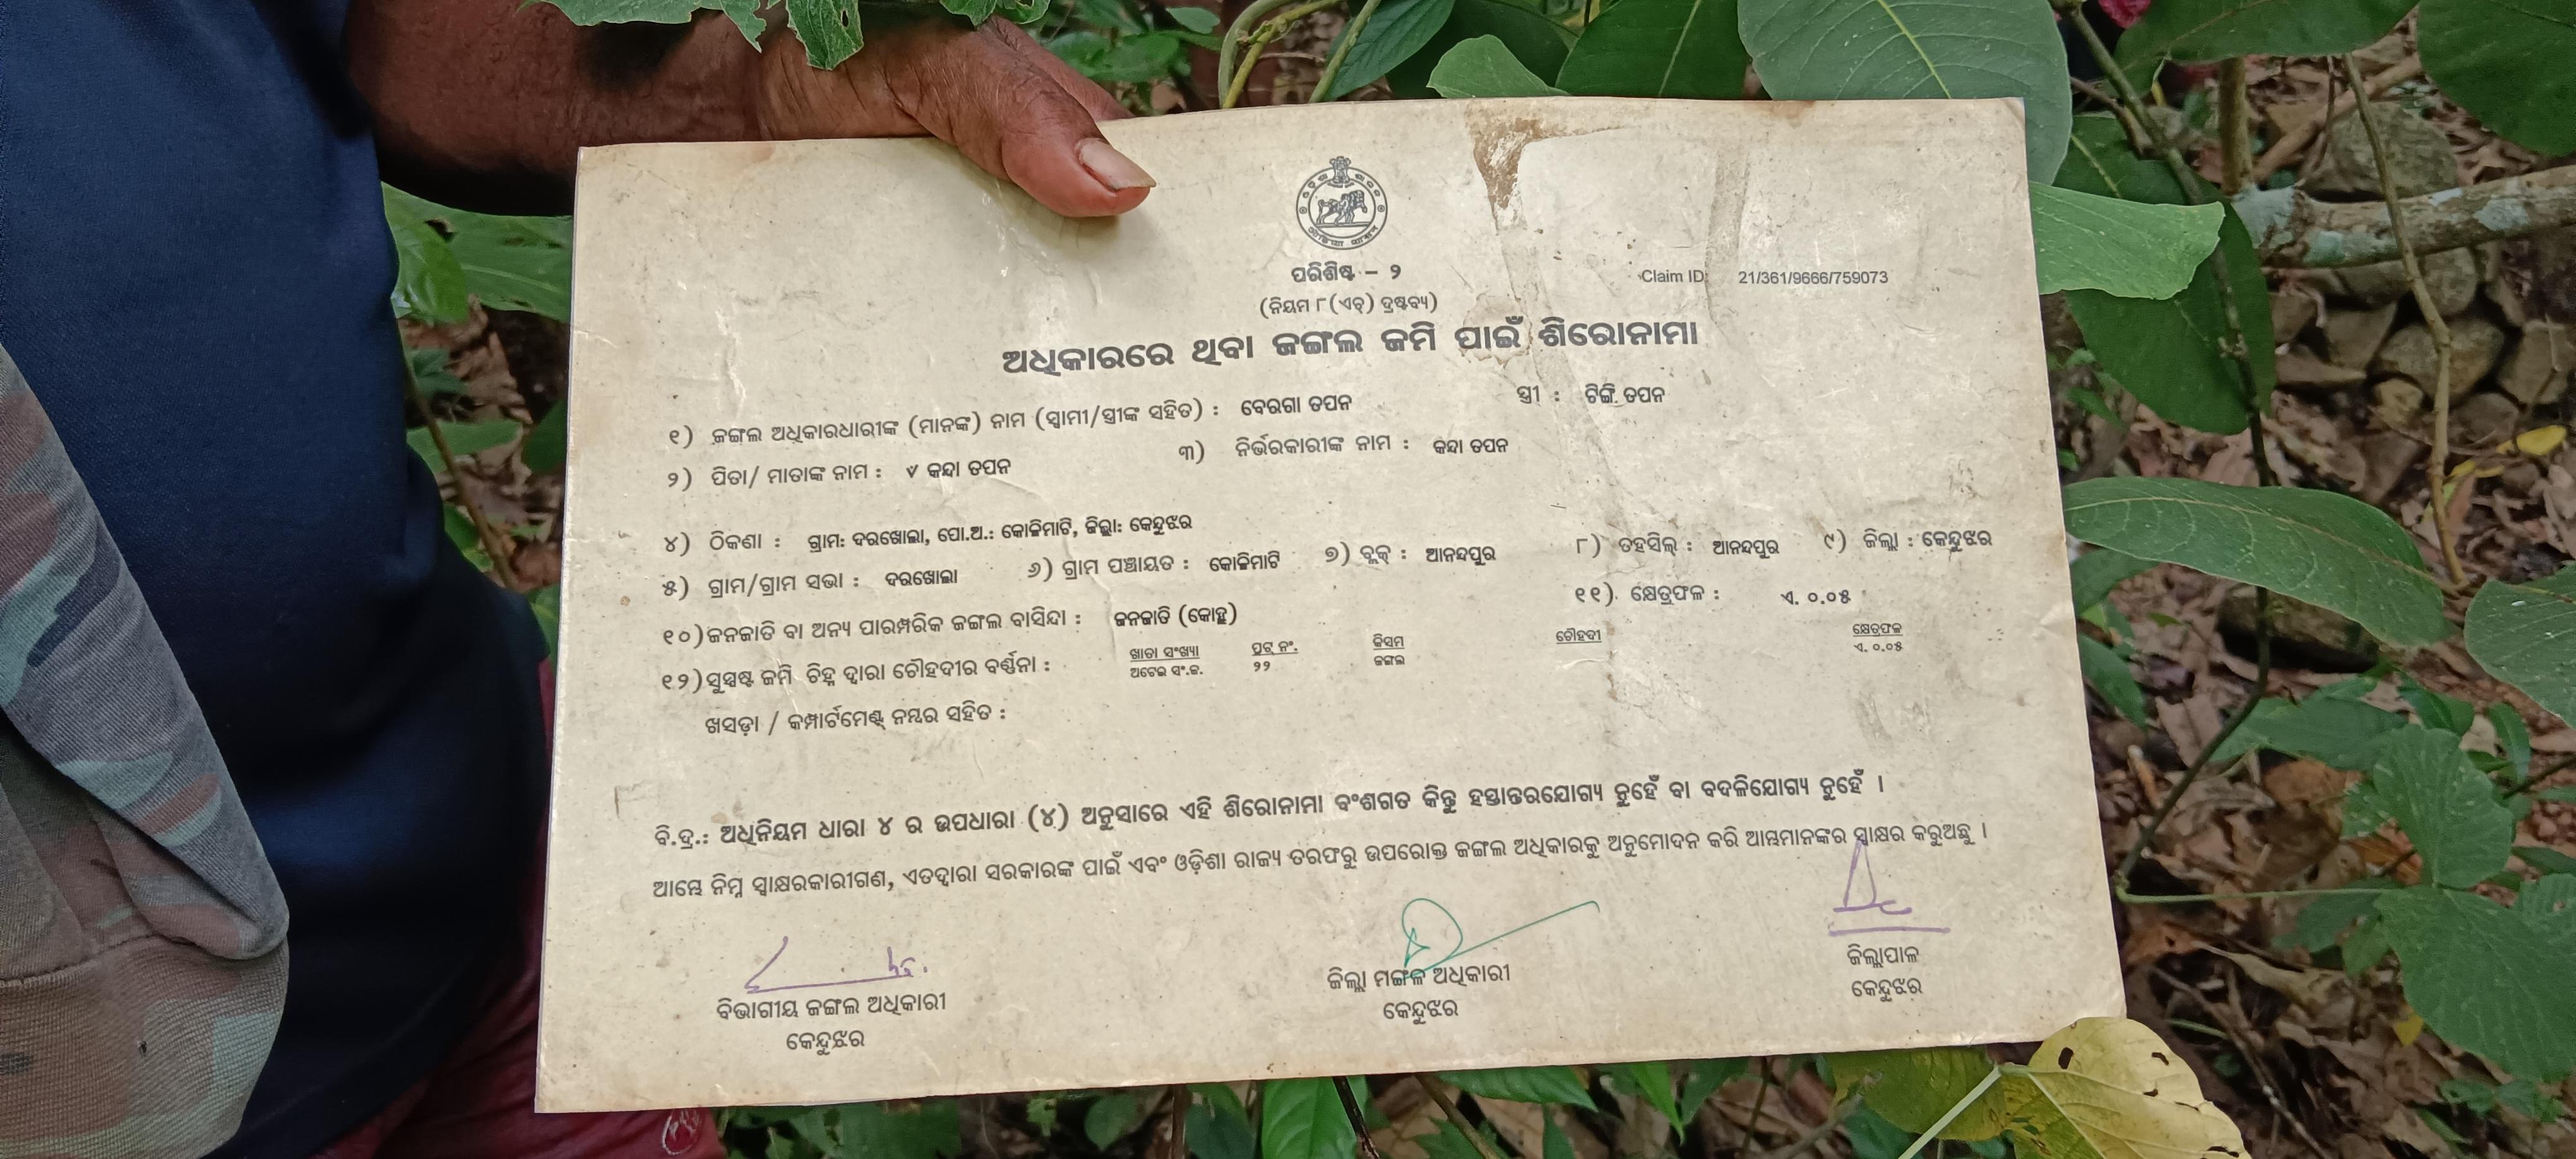 ପରିଶିଷ୍ଟ - ୨
Claim ID: 21/361/9666/759073
(ନିୟମ ୮(ଏଚ୍) ଦ୍ରଷ୍ଟବ୍ୟ)
ଅଧିକାରରେ ଥିବା ଜଙ୍ଗଲ ଜମି ପାଇଁ ଶିରୋନାମା
୧) ଜଙ୍ଗଲ ଅଧିକାରଧାରୀଙ୍କ (ମାନଙ୍କ) ନାମ (ସ୍ୱାମୀ/ସ୍ତ୍ରୀଙ୍କ ସହିତ) : ବେରଗା ତପନ ସ୍ତ୍ରୀ : ଟିଙ୍ଗି ତପନ
୨) ପିତା/ ମାତାଙ୍କ ନାମ : ୪ କନ୍ଦା ତପନ ୩) ନିର୍ଭରକାରୀଙ୍କ ନାମ : କନ୍ଦା ତପନ
୪) ଠିକଣା : ଗ୍ରାମ: ଦରଖୋଲା, ପୋ.ଅ.: କୋଳିମାଟି, ଜିଲ୍ଲା: କେନ୍ଦୁଝର
୫) ଗ୍ରାମ/ଗ୍ରାମ ସଭା : ଦରଖୋଲା ୬) ଗ୍ରାମ ପଞ୍ଚାୟତ : କୋଳିମାଟି ୭) ବ୍ଲକ୍ : ଆନନ୍ଦପୁର ୮) ତହସିଲ୍ : ଆନନ୍ଦପୁର ୯) ଜିଲ୍ଲା : କେନ୍ଦୁଝର
୧୦) ଜନଜାତି ବା ଅନ୍ୟ ପାରମ୍ପରିକ ଜଙ୍ଗଲ ବାସିନ୍ଦା : ଜନଜାତି (କୋହ୍ଲ) ୧୧) କ୍ଷେତ୍ରଫଳ : ଏ. ୦.୦୫
୧୨) ସୁସ୍ପଷ୍ଟ ଜମି ଚିହ୍ନ ଦ୍ୱାରା ଚୌହଦୀର ବର୍ଣ୍ଣନା : ଖାତା ସଂଖ୍ୟା ପ୍ଲଟ୍ ନଂ. କିସମ ଚୌହଦୀ କ୍ଷେତ୍ରଫଳ
ଅଟେଇ ସଂ.ଜ. ୨୨ ଜଙ୍ଗଲ ଏ. ୦.୦୫
ଖସଡ଼ା / କମ୍ପାର୍ଟମେଣ୍ଟ୍ ନମ୍ବର ସହିତ :
ବି.ଦ୍ର.: ଅଧିନିୟମ ଧାରା ୪ ର ଉପଧାରା (୪) ଅନୁସାରେ ଏହି ଶିରୋନାମା ବଂଶଗତ କିନ୍ତୁ ହସ୍ତାନ୍ତରଯୋଗ୍ୟ ନୁହେଁ ବା ବଦଳିଯୋଗ୍ୟ ନୁହେଁ ।
ଆମ୍ଭେ ନିମ୍ନ ସ୍ୱାକ୍ଷରକାରୀଗଣ, ଏତଦ୍ୱାରା ସରକାରଙ୍କ ପାଇଁ ଏବଂ ଓଡ଼ିଶା ରାଜ୍ୟ ତରଫରୁ ଉପରୋକ୍ତ ଜଙ୍ଗଲ ଅଧିକାରକୁ ଅନୁମୋଦନ କରି ଆମ୍ଭମାନଙ୍କର ସ୍ୱାକ୍ଷର କରୁଅଛୁ ।
ବିଭାଗୀୟ ଜଙ୍ଗଲ ଅଧିକାରୀ
କେନ୍ଦୁଝର
ଜିଲ୍ଲା ମଙ୍ଗଳ ଅଧିକାରୀ
କେନ୍ଦୁଝର
ଜିଲ୍ଲାପାଳ
କେନ୍ଦୁଝର